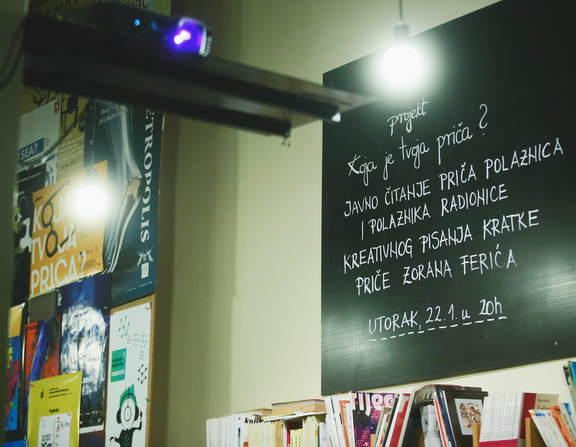 projekt
Koja je tvoja priča?
JAVNO ČITANJE PRIČA POLAZNICA
I POLAZNIKA RADIONICE
KREATIVNOG PISANJA KRATKE
PRIČE ZORANA FERIĆA
UTORAK, 22.1. u 20h
METROPOLIS
SEA?
KOJA JE
TVOJA
PRIČA?